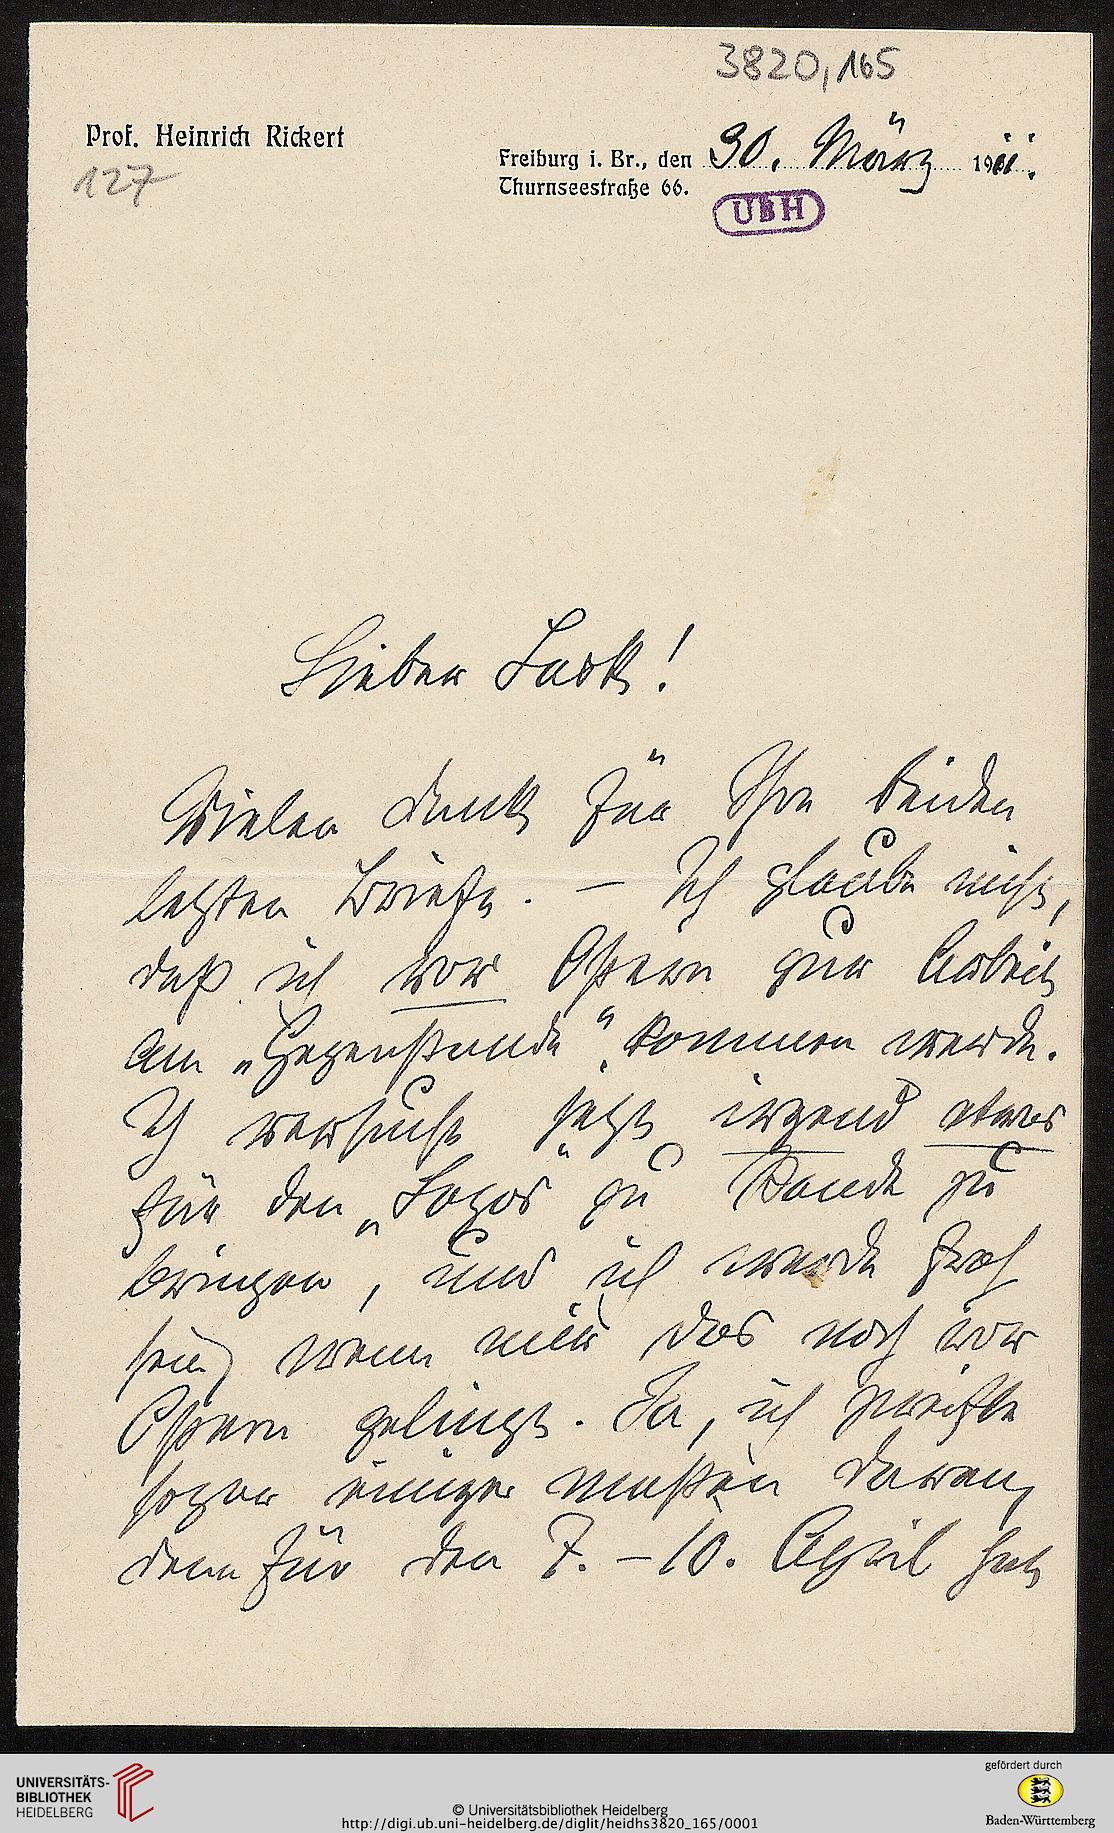 3820,165
Prof. Heinrich Rickert
127
Freiburg i. Br., den 30. März 1911.
Thurnseestraße 66.
UBH
Lieber Lask!
Vielen Dank für Ihre beiden
letzten Briefe. – Ich glaube nicht,
daß ich vor Ostern zur Arbeit
am „Gegenstande“ kommen werde.
Ich versuche jetzt irgend etwas
für den „Logos“ zu Stande zu
bringen, und ich werde froh
sein, wenn mir das noch vor
Ostern gelingt. Ja, ich zweifle
sogar einiger maßen daran,
denn für den 7. – 10. April hat
UNIVERSITÄTS-
BIBLIOTHEK
HEIDELBERG
© Universitätsbibliothek Heidelberg
http://digi.ub.uni-heidelberg.de/diglit/heidhs3820_165/0001
gefördert durch
Baden-Württemberg